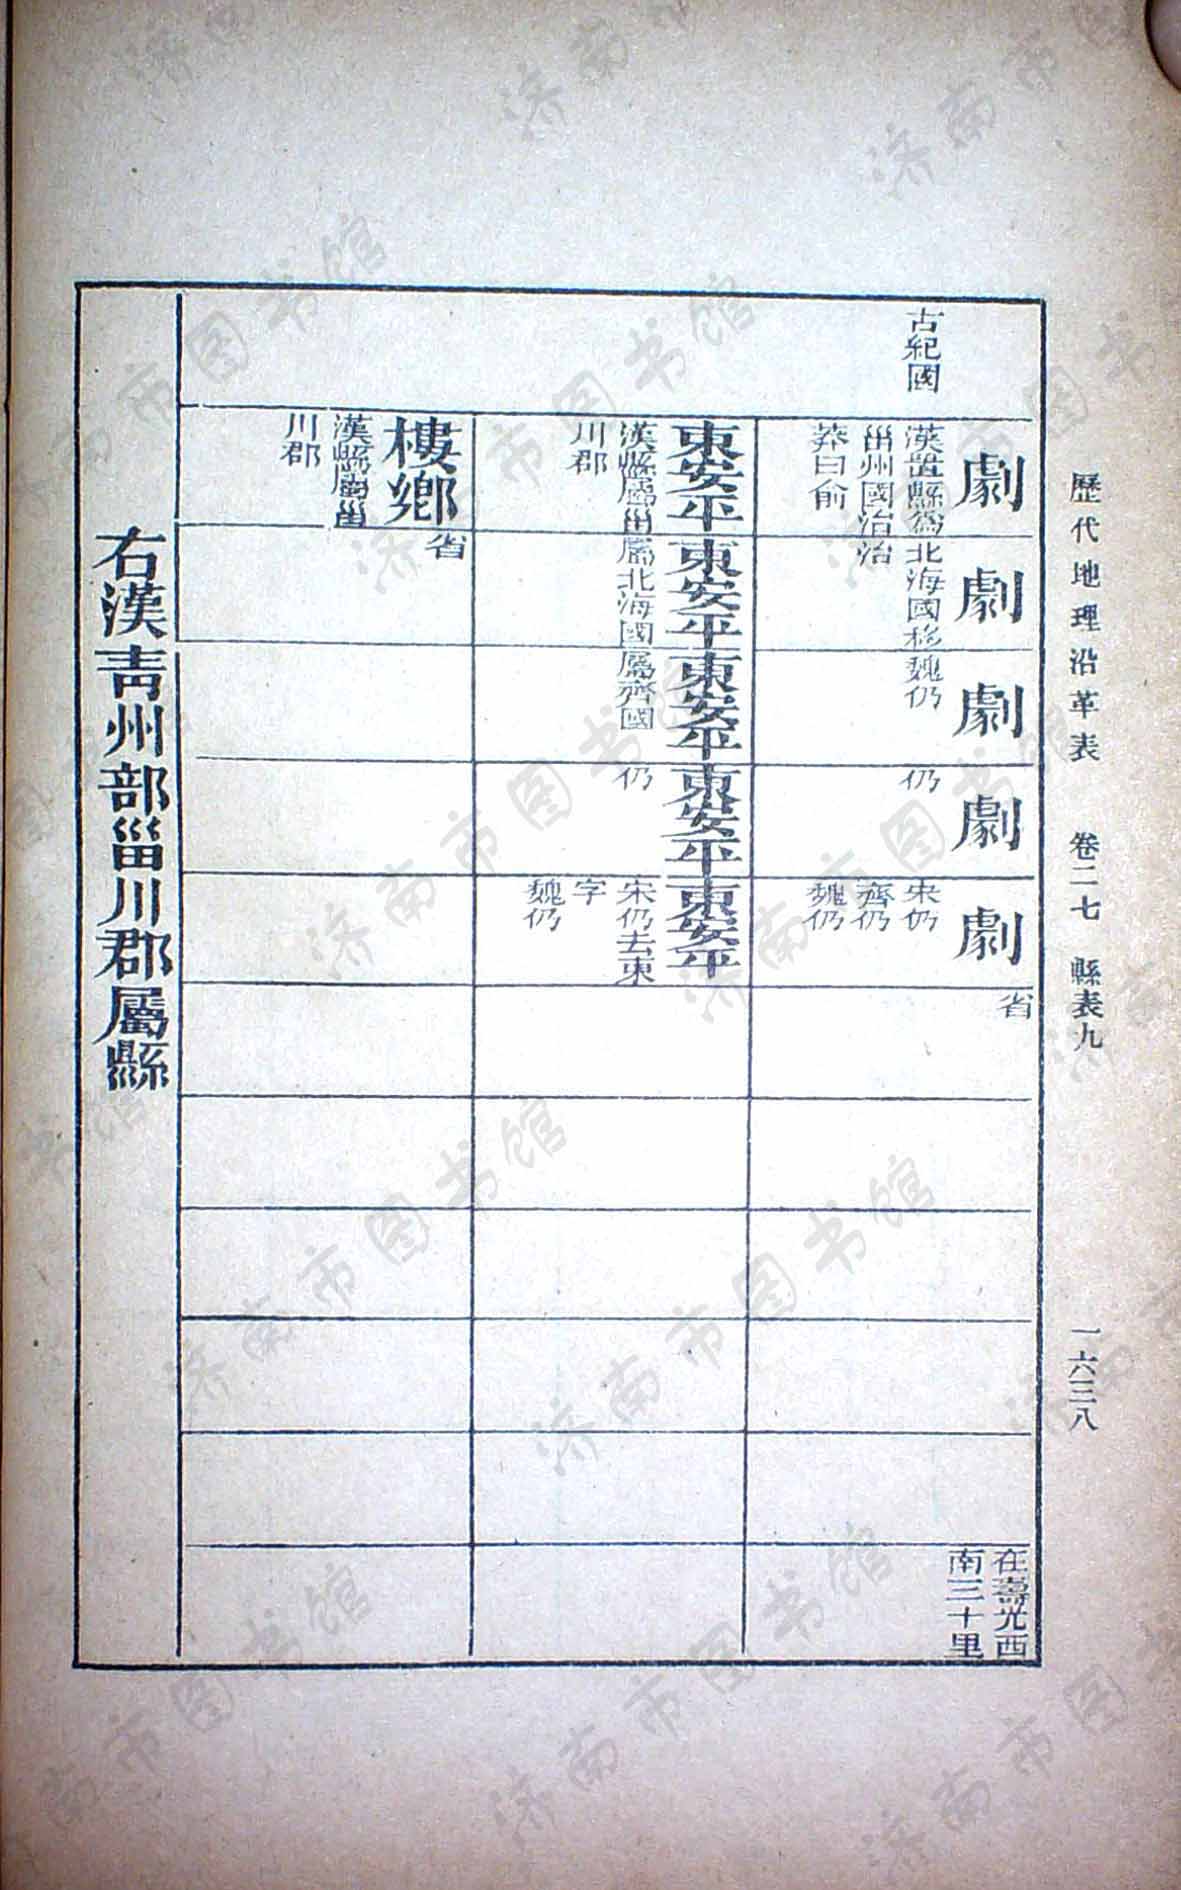 歷代地理沿革表 卷二七 縣表九 一六三八
古紀國
劇
漢置縣爲
甾州國治
莽曰俞
劇
北海國移
治
劇
魏仍
劇
仍
劇
宋仍
齊仍
魏仍
省
在壽光西
南三十里
東安平
漢縣屬甾
川郡
東安平
屬北海國
東安平
屬齊國
東安平
仍
東安平
宋仍去東
字
魏仍
樓鄉
漢縣屬甾
川郡
省
右漢青州部甾川郡屬縣
济南市图书馆